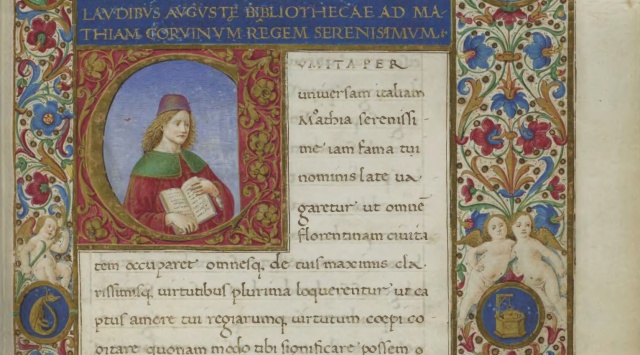 LAVDIBVS AVGVSTE BIBLIOTHECAE AD MA
THIAM CORVINVM REGEM SERENISSIMVM.
VM ITA PER
universam italiam
Mathia serenissi
me iam fama tui
nominis late va
garetur ut omnē
florentinam civita
tem occuparet omnesq. de tuis maximis cla
rissimisq virtutibus plurima loquerentur ut ca
ptus amore tui regiarumq virtutum coepi co
gitare quonam modo tibi significare possem